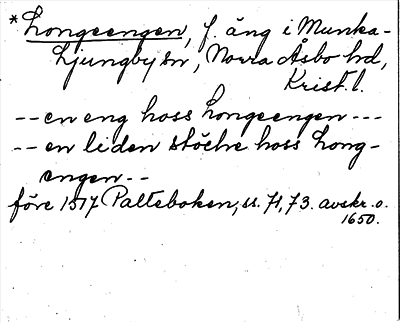 *Longeengen, f. äng i Munka-
Ljungby sn, Norra Åsbo hd,
Krist.l.
--en eng hoss Longeengen---
--en liden stöche hoss Long-
engen--
före 1517 Palteboken, ss. 71, 73. avskr. o.
1650.